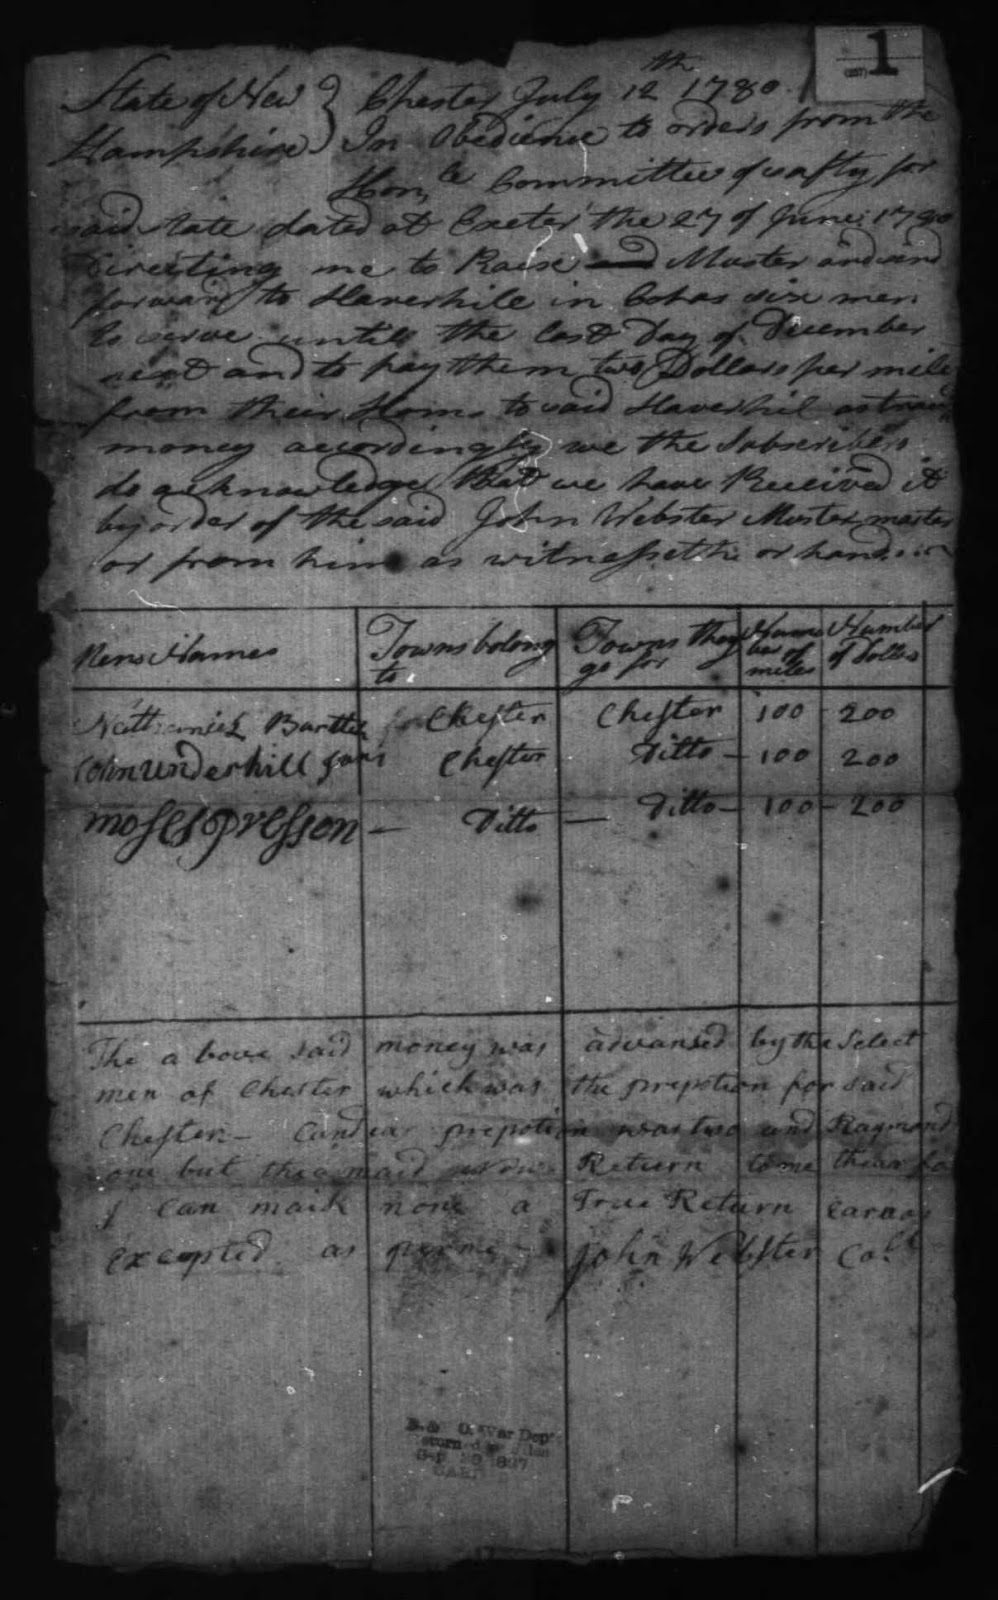 1
State of New } Chester July 12th 1780.
Hampshire } In Obedience to orders from the
Honle Committee of safty for
said state dated at Exeter the 27 of June 1780
Directing me to Raise and Muster and send
forward to Haverhile in Cohos six men
to serve untill the last Day of December
next and to pay them two Dollars per mile
from their Homs to said Haverhil as travil
money accordingly we the Subscribers
do acknowledge that we have Received it
by order of the said John Webster Muster master
or from him as witnesseth or hand
Mens Names | Towns belong to | Towns they go for | Number of miles | Number of Dollars
Nathaniel Bartlet Chester Chester 100 - 200
John underhill Junr Chester Ditto - 100 200
moses Presson - Ditto - Ditto - 100 - 200
The above said money was advansed by the Select
men of Chester which was the prepotion for said
Chester - Candia prepotion was two and Raymond
one but Return to me
I can maik none a True Return
Excepted as John Webster Col